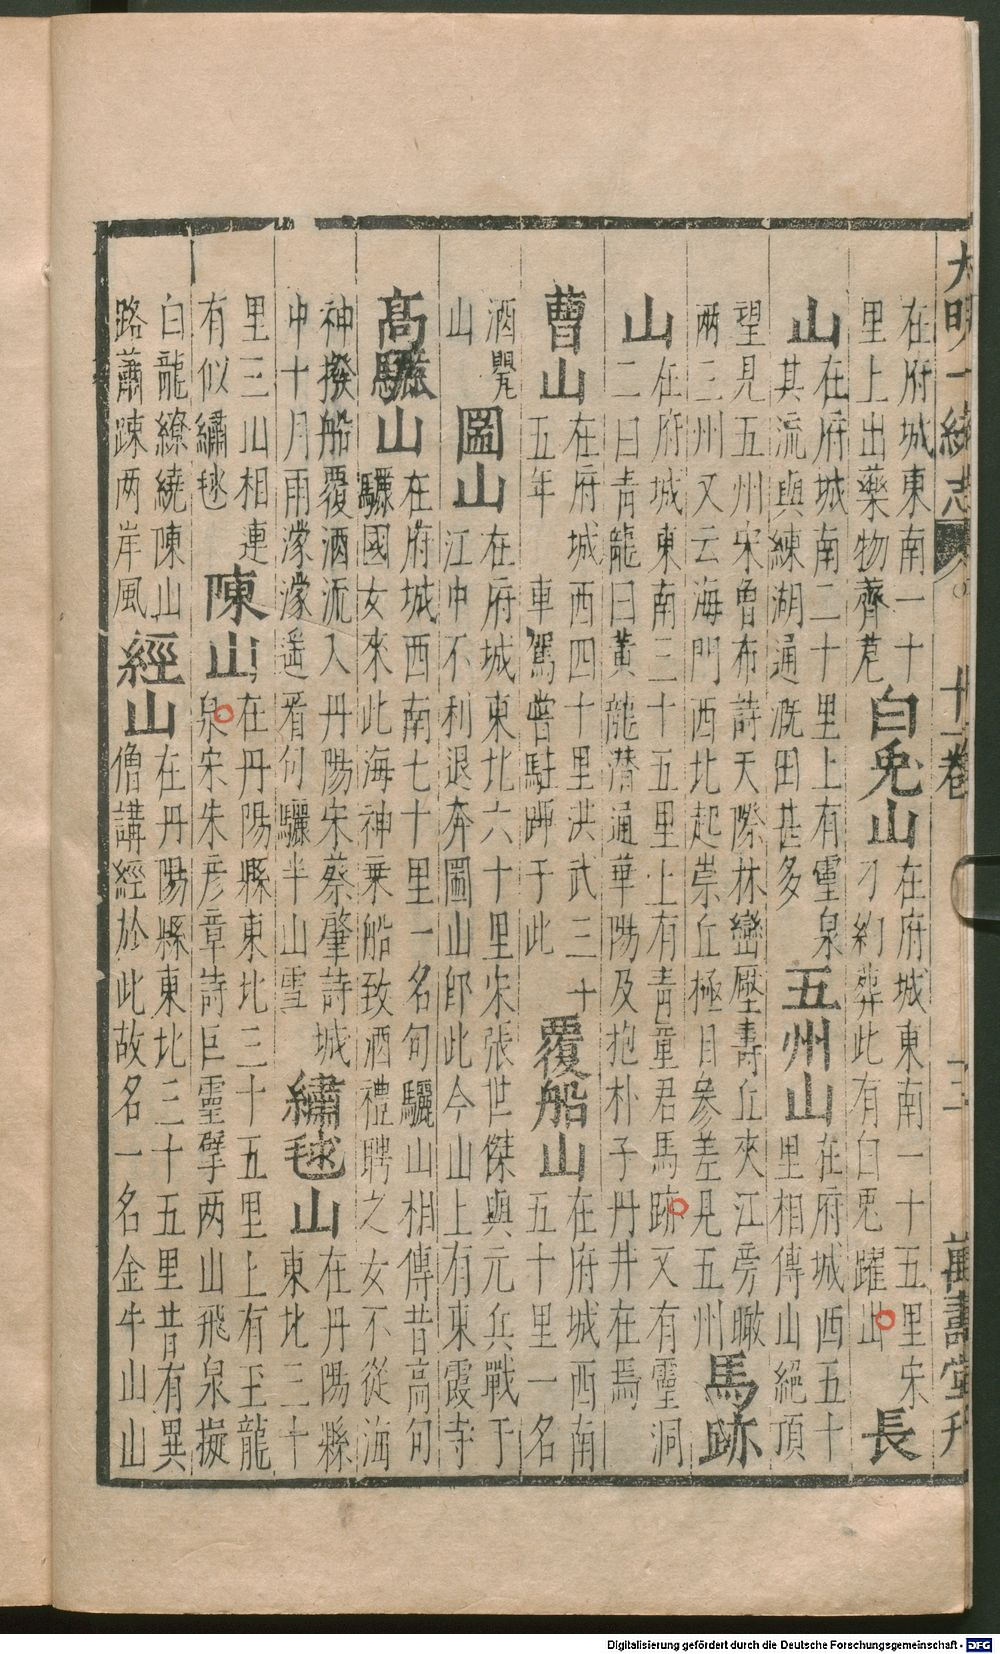 大明一統志 十一卷 十二 萬壽堂刊
在府城東南一十
里上出藥物薺苨
白兔山
在府城東南一十五里宋
刁約葬此有白兎躍出
長
山
在府城南二十里上有靈泉
其流與練湖通溉田甚多
五州山
在府城西五十
里相傳山絕頂
望見五州宋曾布詩天際林巒壓壽丘夾江旁瞰
两三州又云海門西北起崇丘極目參差見五州
馬跡
山
在府城東南三十五里上有青童君馬跡又有靈洞
二曰青龍曰黃龍潛通華陽及抱朴子丹井在焉
曹山
在府城西四十里洪武三十
五年 車駕嘗駐蹕于此
覆船山
在府城西南
五十里一名
酒甖
山
圌山
在府城東北六十里宋張世傑與元兵戰于
江中不利退奔圌山即此今山上有東霞寺
高驪山
在府城西南七十里一名句驪山相傳昔高句
驪國女來此海神乗船致酒禮聘之女不從海
神撥船覆酒流入丹陽宋蔡肇詩城
中十月雨濛濛遥看句驪半山雪
繡毬山
在丹陽縣
東北三十
里三山相連
有似繡毬
陳山
在丹陽縣東北三十五里上有玉龍
泉宋朱彦章詩巨靈擘两山飛泉擬
白龍繚繞陳山
路蕭踈两岸風
經山
在丹陽縣東北三十五里昔有異
僧講經於此故名一名金牛山山
Digitalisierung gefördert durch die Deutsche Forschungsgemeinschaft - DFG